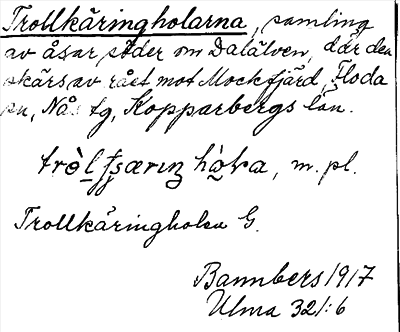 Trollkäringholarna, samling
av åsar söder om Dalälven, där den
skärs av rået mot Mockfjärd, Floda
sn, Nås tg, Kopparbergs län.
m. pl.
Trollkäringholea G.
Bannbers 1917
Ulma 321:6